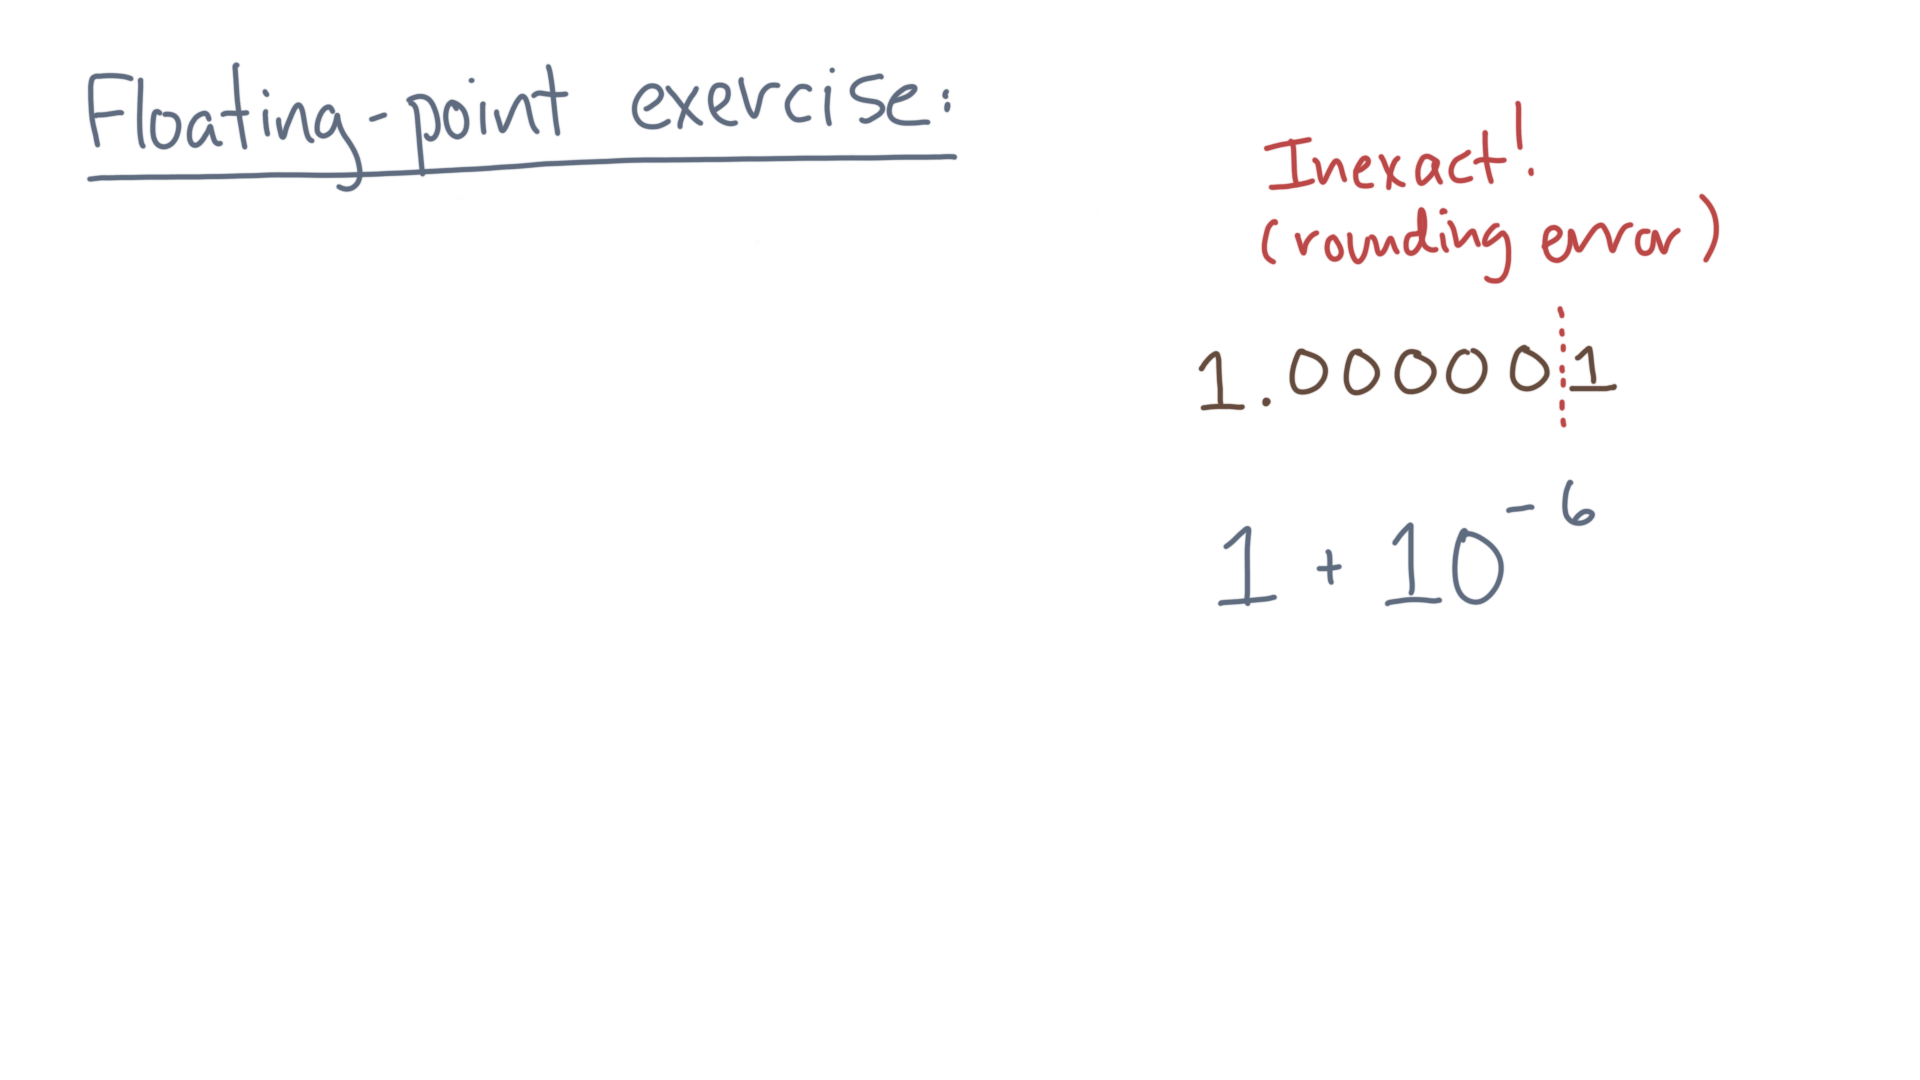 Floating-point exercise:
Inexact!
(rounding error)
1.000001
1 + 10⁻⁶